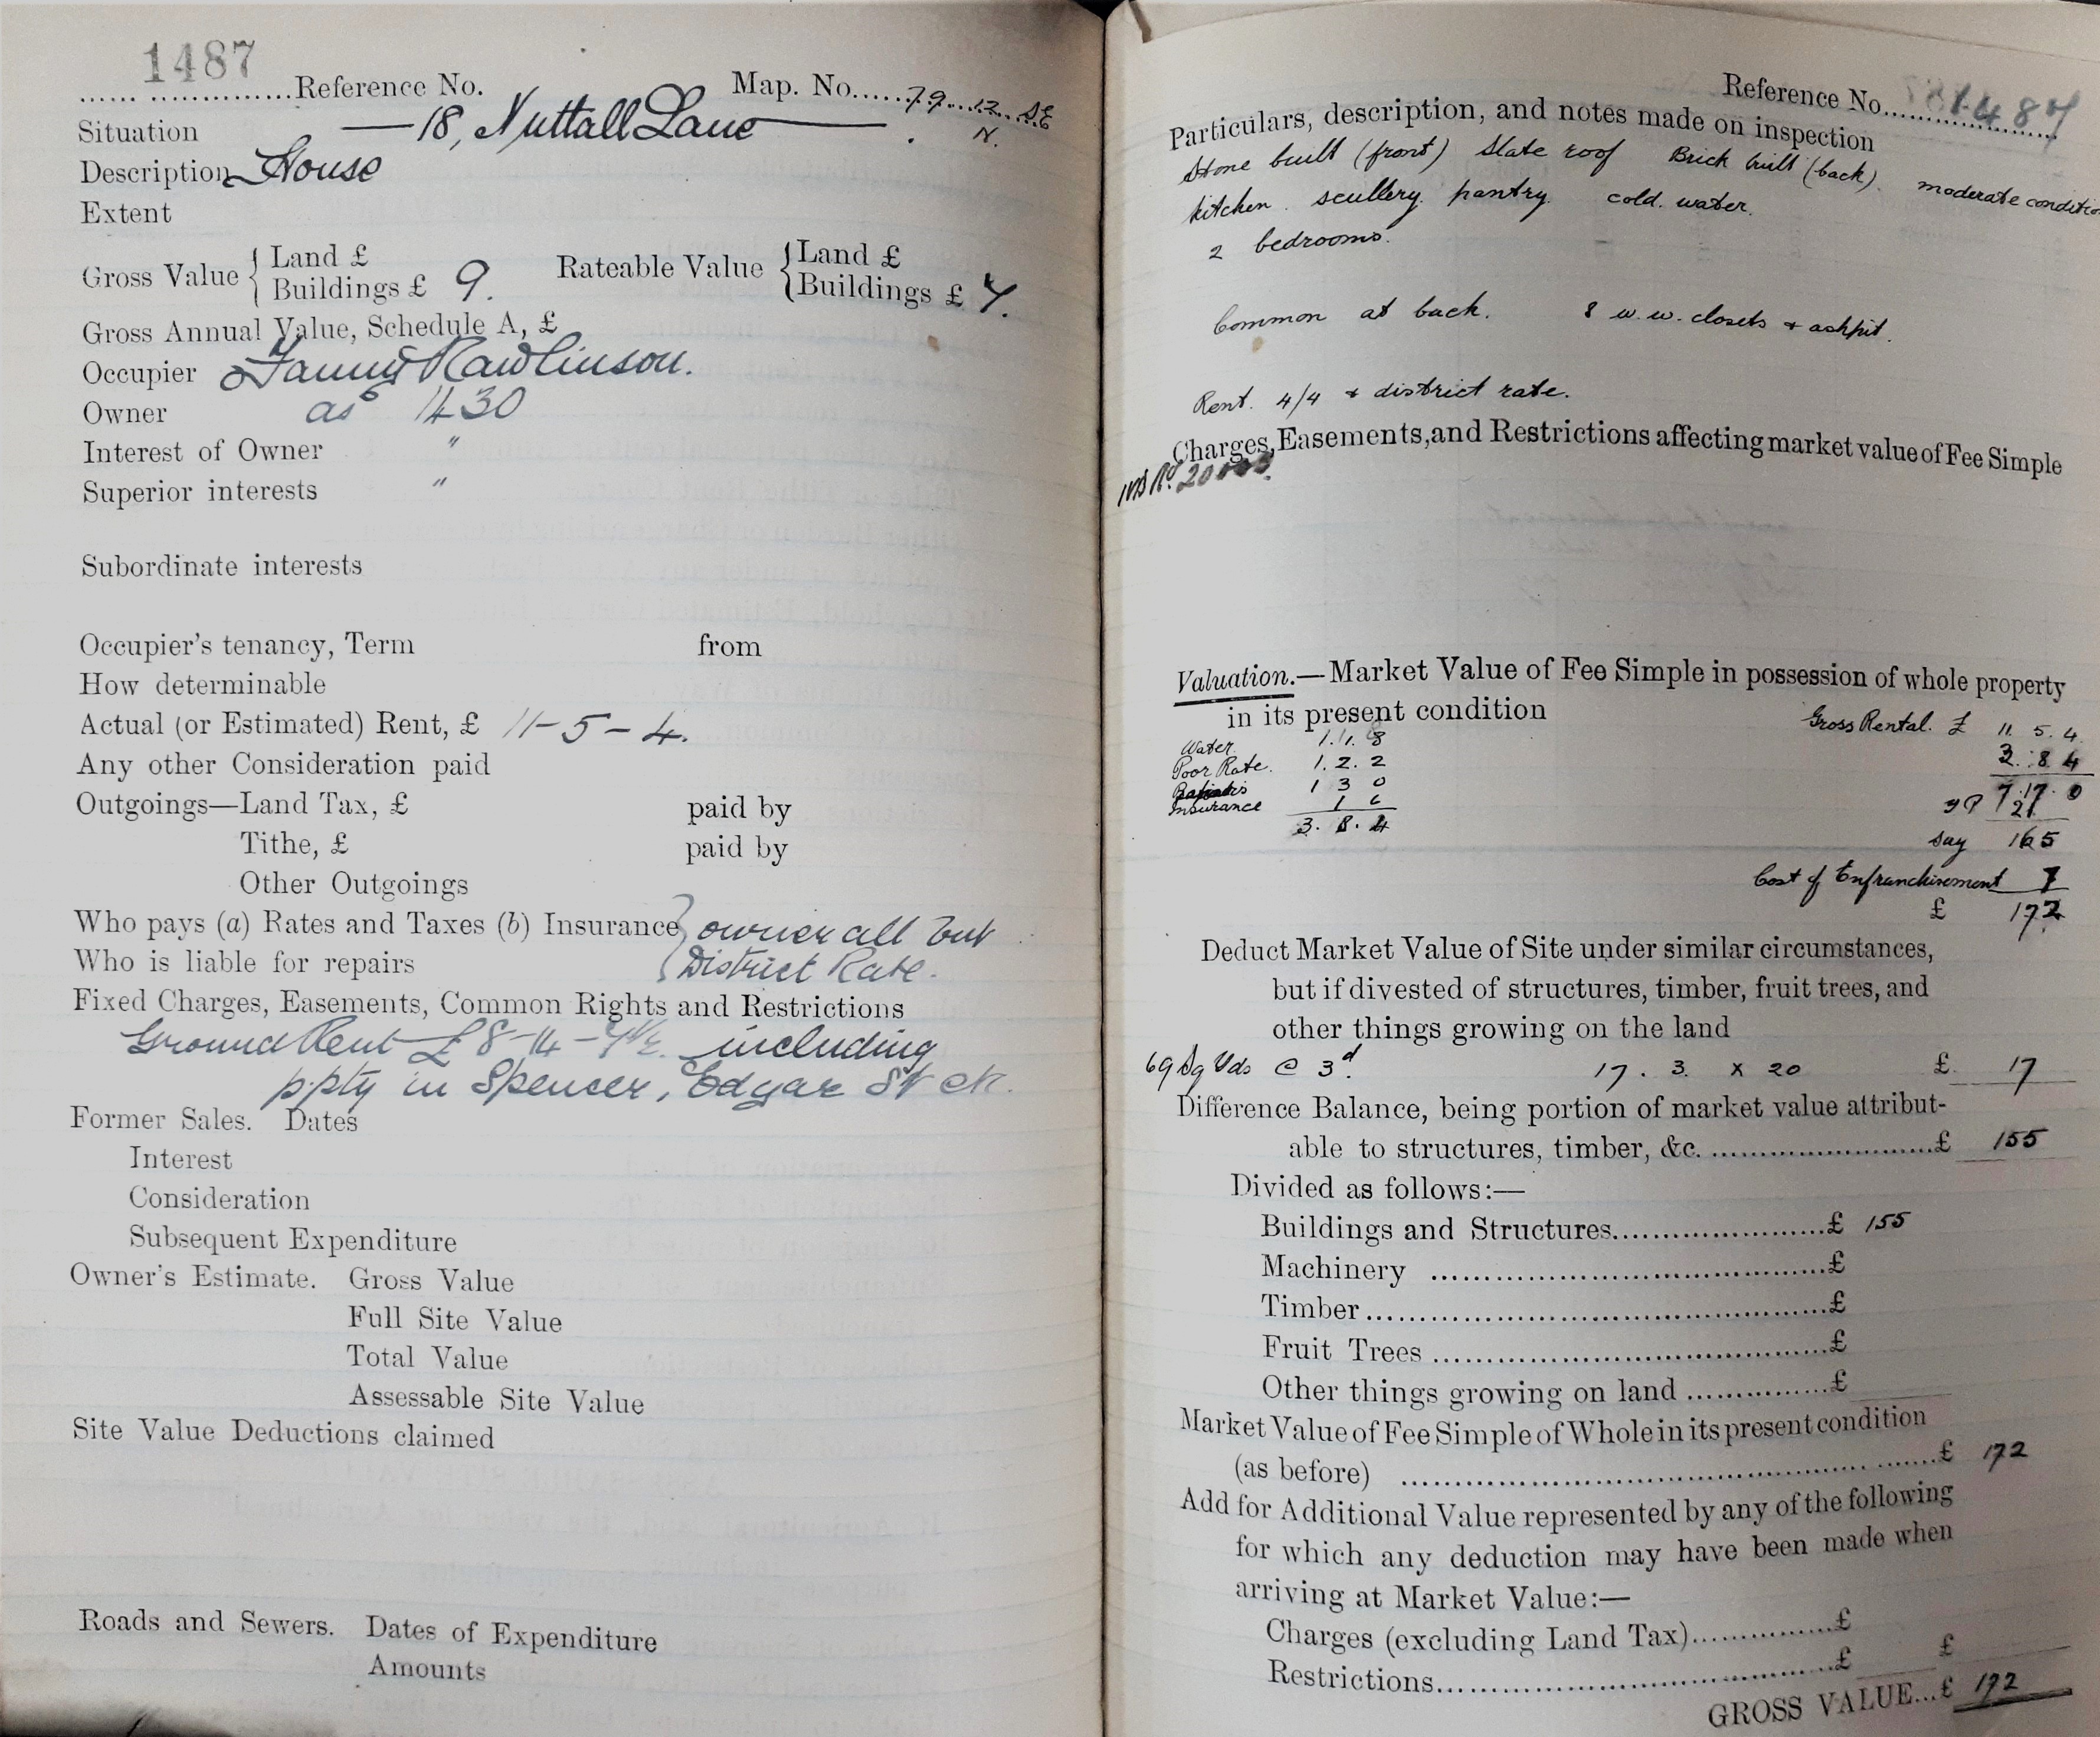 1487
Reference No. Map. No. 79. 12. SE
N.
Situation — 18, Nuttall Lane —
Description House
Extent
Gross Value { Land £
Buildings £ 9.
Rateable Value { Land £
Buildings £ 7.
Gross Annual Value, Schedule A, £
Occupier Fanny Rawlinson.
Owner as 1430
Interest of Owner "
Superior interests "
Subordinate interests
Occupier's tenancy, Term from
How determinable
Actual (or Estimated) Rent, £ 11-5-4.
Any other Consideration paid
Outgoings—Land Tax, £ paid by
Tithe, £ paid by
Other Outgoings
Who pays (a) Rates and Taxes (b) Insurance } owner all but
Who is liable for repairs { District Rate.
Fixed Charges, Easements, Common Rights and Restrictions
Ground Rent £8-14-7½ including
ppty in Spencer, Edgar St etc.
Former Sales. Dates
Interest
Consideration
Subsequent Expenditure
Owner's Estimate. Gross Value
Full Site Value
Total Value
Assessable Site Value
Site Value Deductions claimed
Roads and Sewers. Dates of Expenditure
Amounts
Reference No. 1487
Particulars, description, and notes made on inspection
Stone built (front) Slate roof Brick built (back). moderate condition
kitchen. scullery. pantry. cold. water.
2 bedrooms.
Common at back. 8 w.w. closets + ashpit.
Rent. 4/4 + district rate.
Charges, Easements, and Restrictions affecting market value of Fee Simple
Valuation.—Market Value of Fee Simple in possession of whole property
in its present condition
Gross Rental. £ 11. 5. 4.
Water. 1. 1. 8
3. 8. 4
Poor Rate. 1. 2. 2
7. 17. 0
1 3 0
YP 21
Insurance 1 6
3. 8. 4
say 165
Cost of Enfranchisement 7
£ 172
Deduct Market Value of Site under similar circumstances,
but if divested of structures, timber, fruit trees, and
other things growing on the land
69 Sq Yds @ 3d. 17. 3. x 20 £ 17
Difference Balance, being portion of market value attribut-
able to structures, timber, &c. £ 155
Divided as follows:—
Buildings and Structures £ 155
Machinery £
Timber £
Fruit Trees £
Other things growing on land £
Market Value of Fee Simple of Whole in its present condition
(as before) £ 172
Add for Additional Value represented by any of the following
for which any deduction may have been made when
arriving at Market Value:—
Charges (excluding Land Tax) £
Restrictions £ £
GROSS VALUE...£ 172